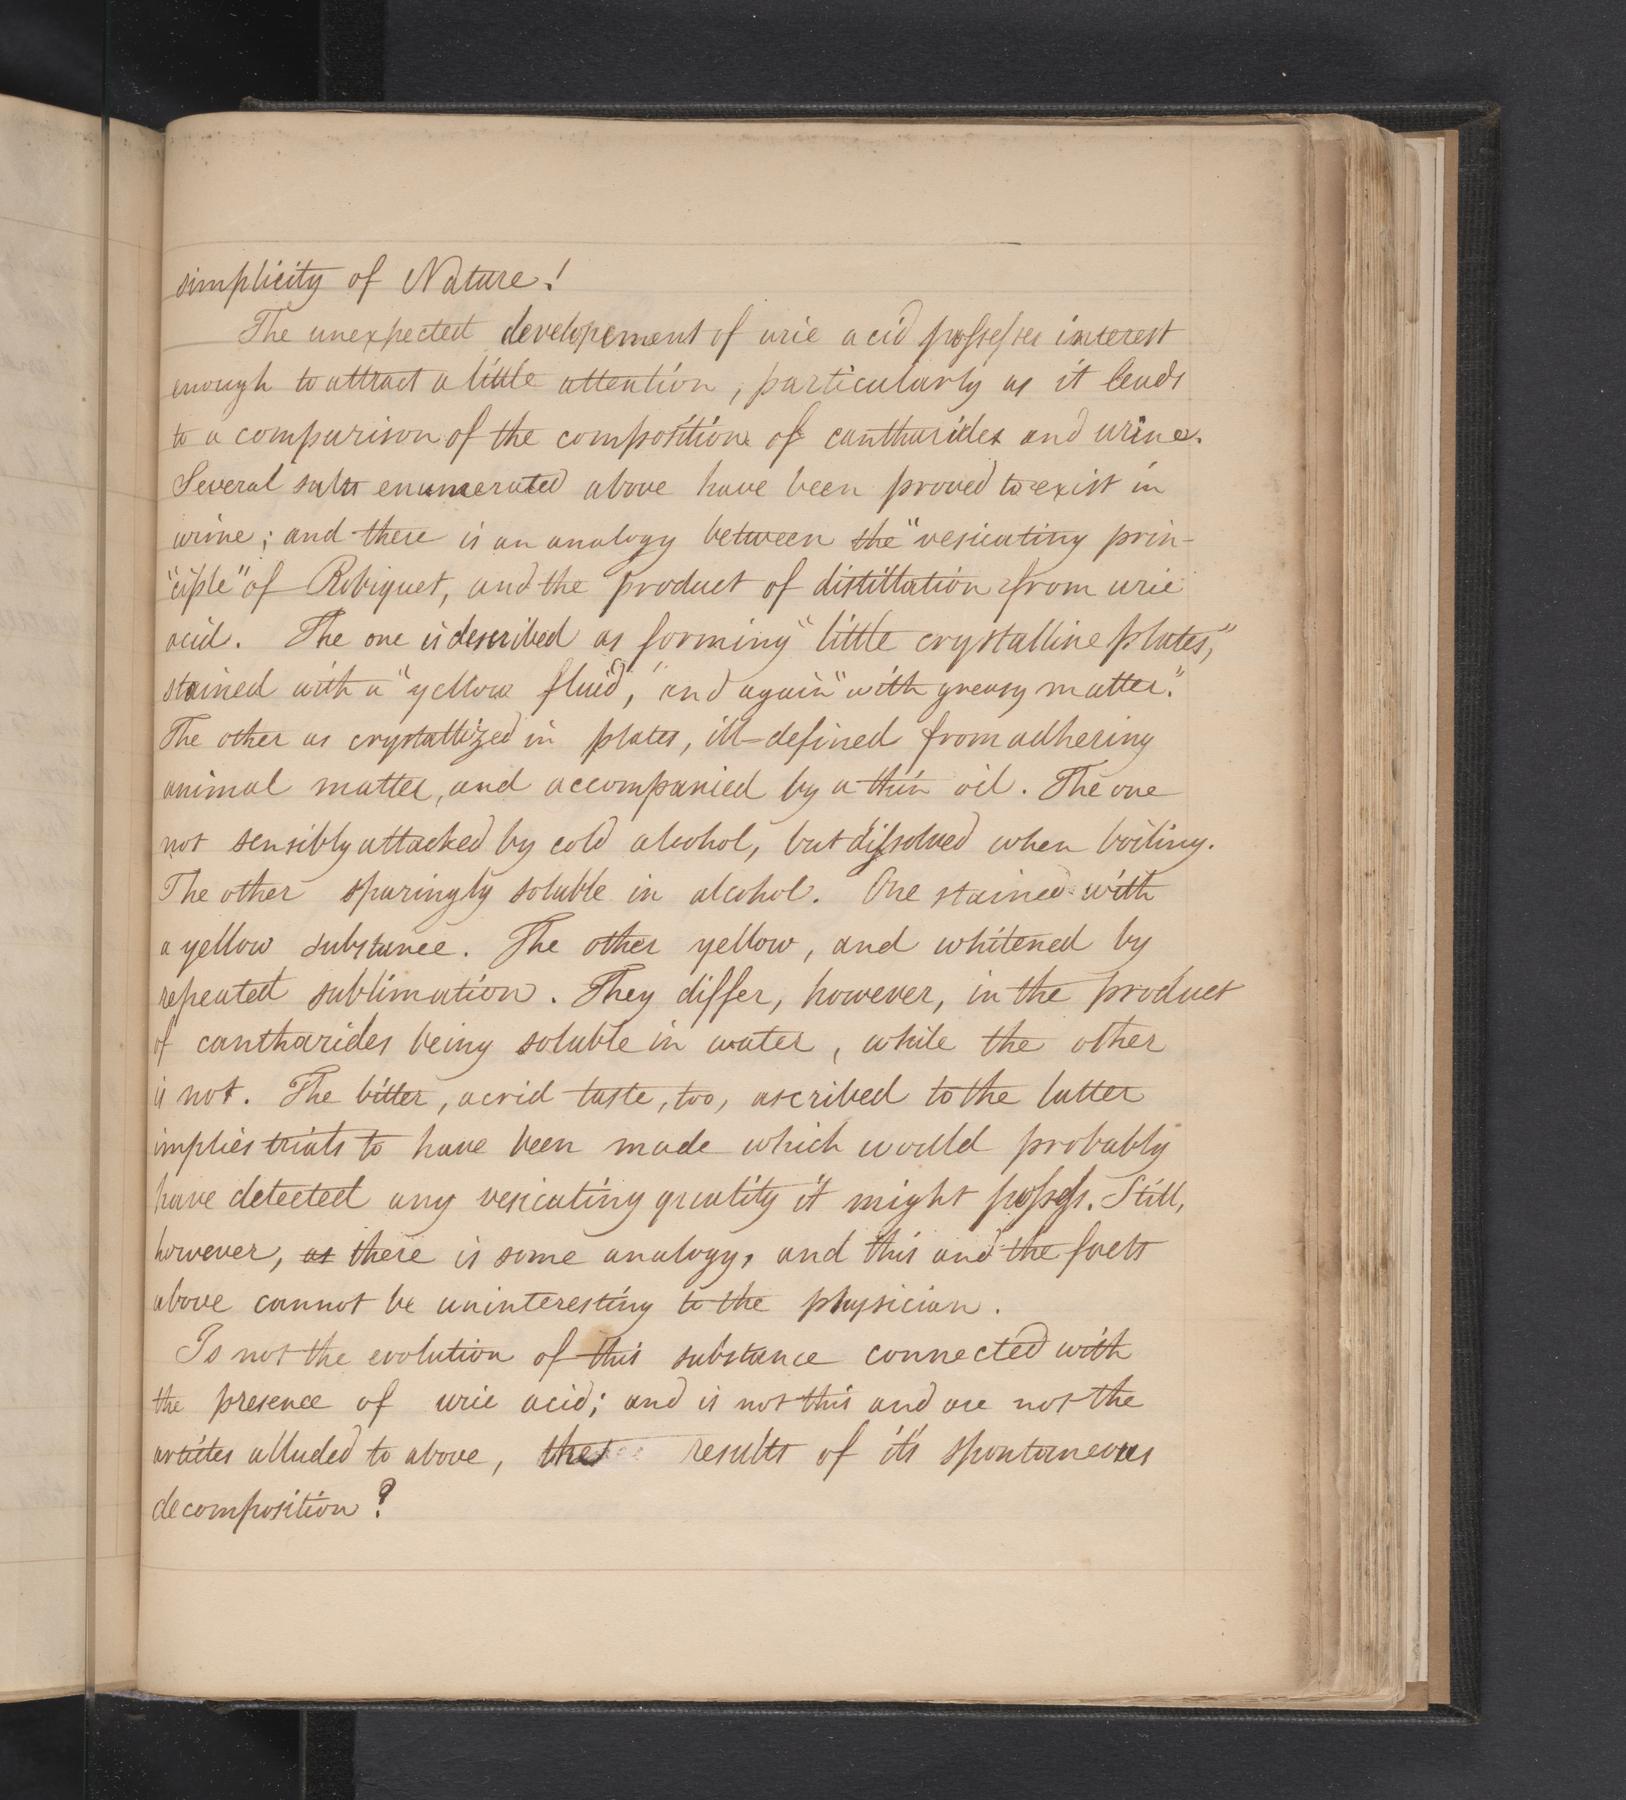 simplicity of Nature!
The unexpected developement of uric acid possesses interest
enough to attract a little attention, particularly as it leads
to a comparison of the composition of cantharides and urine.
Several salts enumerated above have been proved to exist in
urine; and there is an analogy between the "vesicating prin-
"ciple" of Robiquet, and the product of distillation from uric
acid. The one is described as forming "little crystalline plates,"
stained with a "yellow fluid," and again "with greasy matter."
The other as crystallized in plates, ill-defined from adhering
animal matter, and accompanied by a thin oil. The one
not sensibly attacked by cold alcohol, but dissolved when boiling.
The other sparingly soluble in alcohol. One stained with
a yellow substance. The other yellow, and whitened by
repeated sublimation. They differ, however, in the product
of cantharides being soluble in water, while the other
is not. The bitter, acrid taste, too, ascribed to the latter
implies trials to have been made which would probably
have detected any vesicating quality it might possess. Still,
however, as there is some analogy, and this and the facts
above cannot be uninteresting to the physician.
Is not the evolution of this substance connected with
the presence of uric acid; and is not this and are not the
alluded to above, the results of it's spontaneous
decomposition?